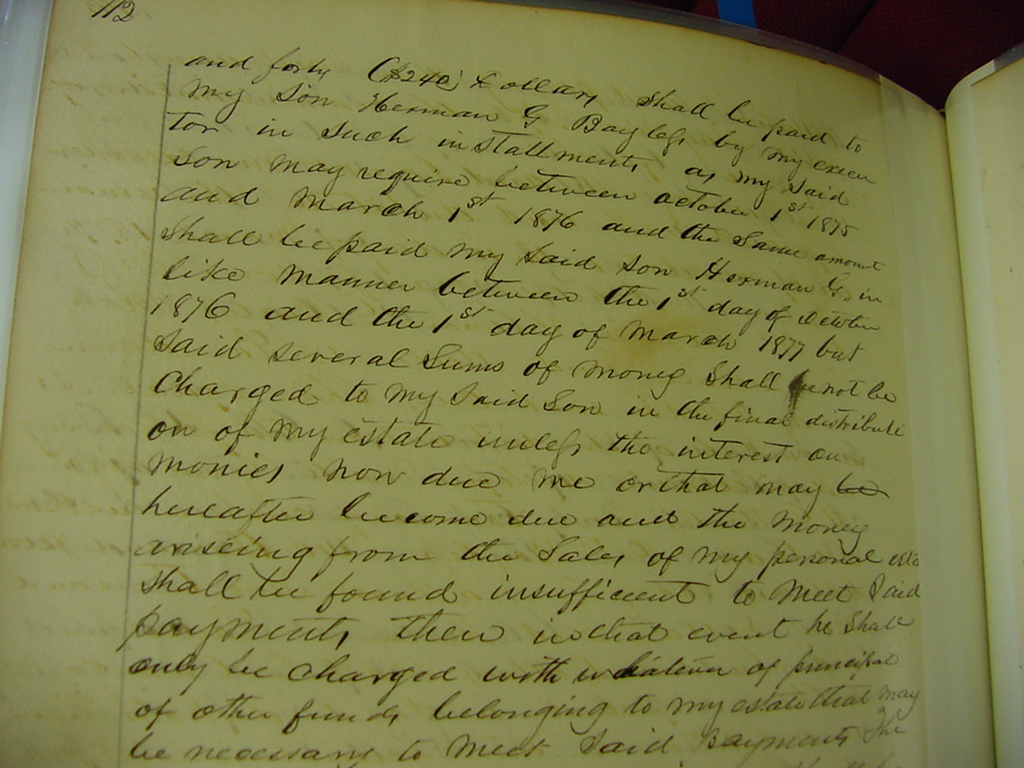 112
and forty ($240) Dollars Shall be paid to
my Son Herman G Bayless by my execu
tor in Such installments as my Said
Son may require between october 1st 1875
and March 1st 1876 and the Same amount
Shall be paid my Said Son Herman G. in
like manner between the 1st day of
1876 and the 1st day of March 1877 but
Said Several Sums of money Shall not be
Charged to my Said Son in the final distributi
on of my estate unless the interest on
monies now due me or that may be
hereafter become due and the money
arising from the Sales of my personal
Shall be found insufficient to meet Said
payments, then in that event he Shall
only be charged with of principal
of other funds belonging to my estate that may
be necessary to meet Said payments The